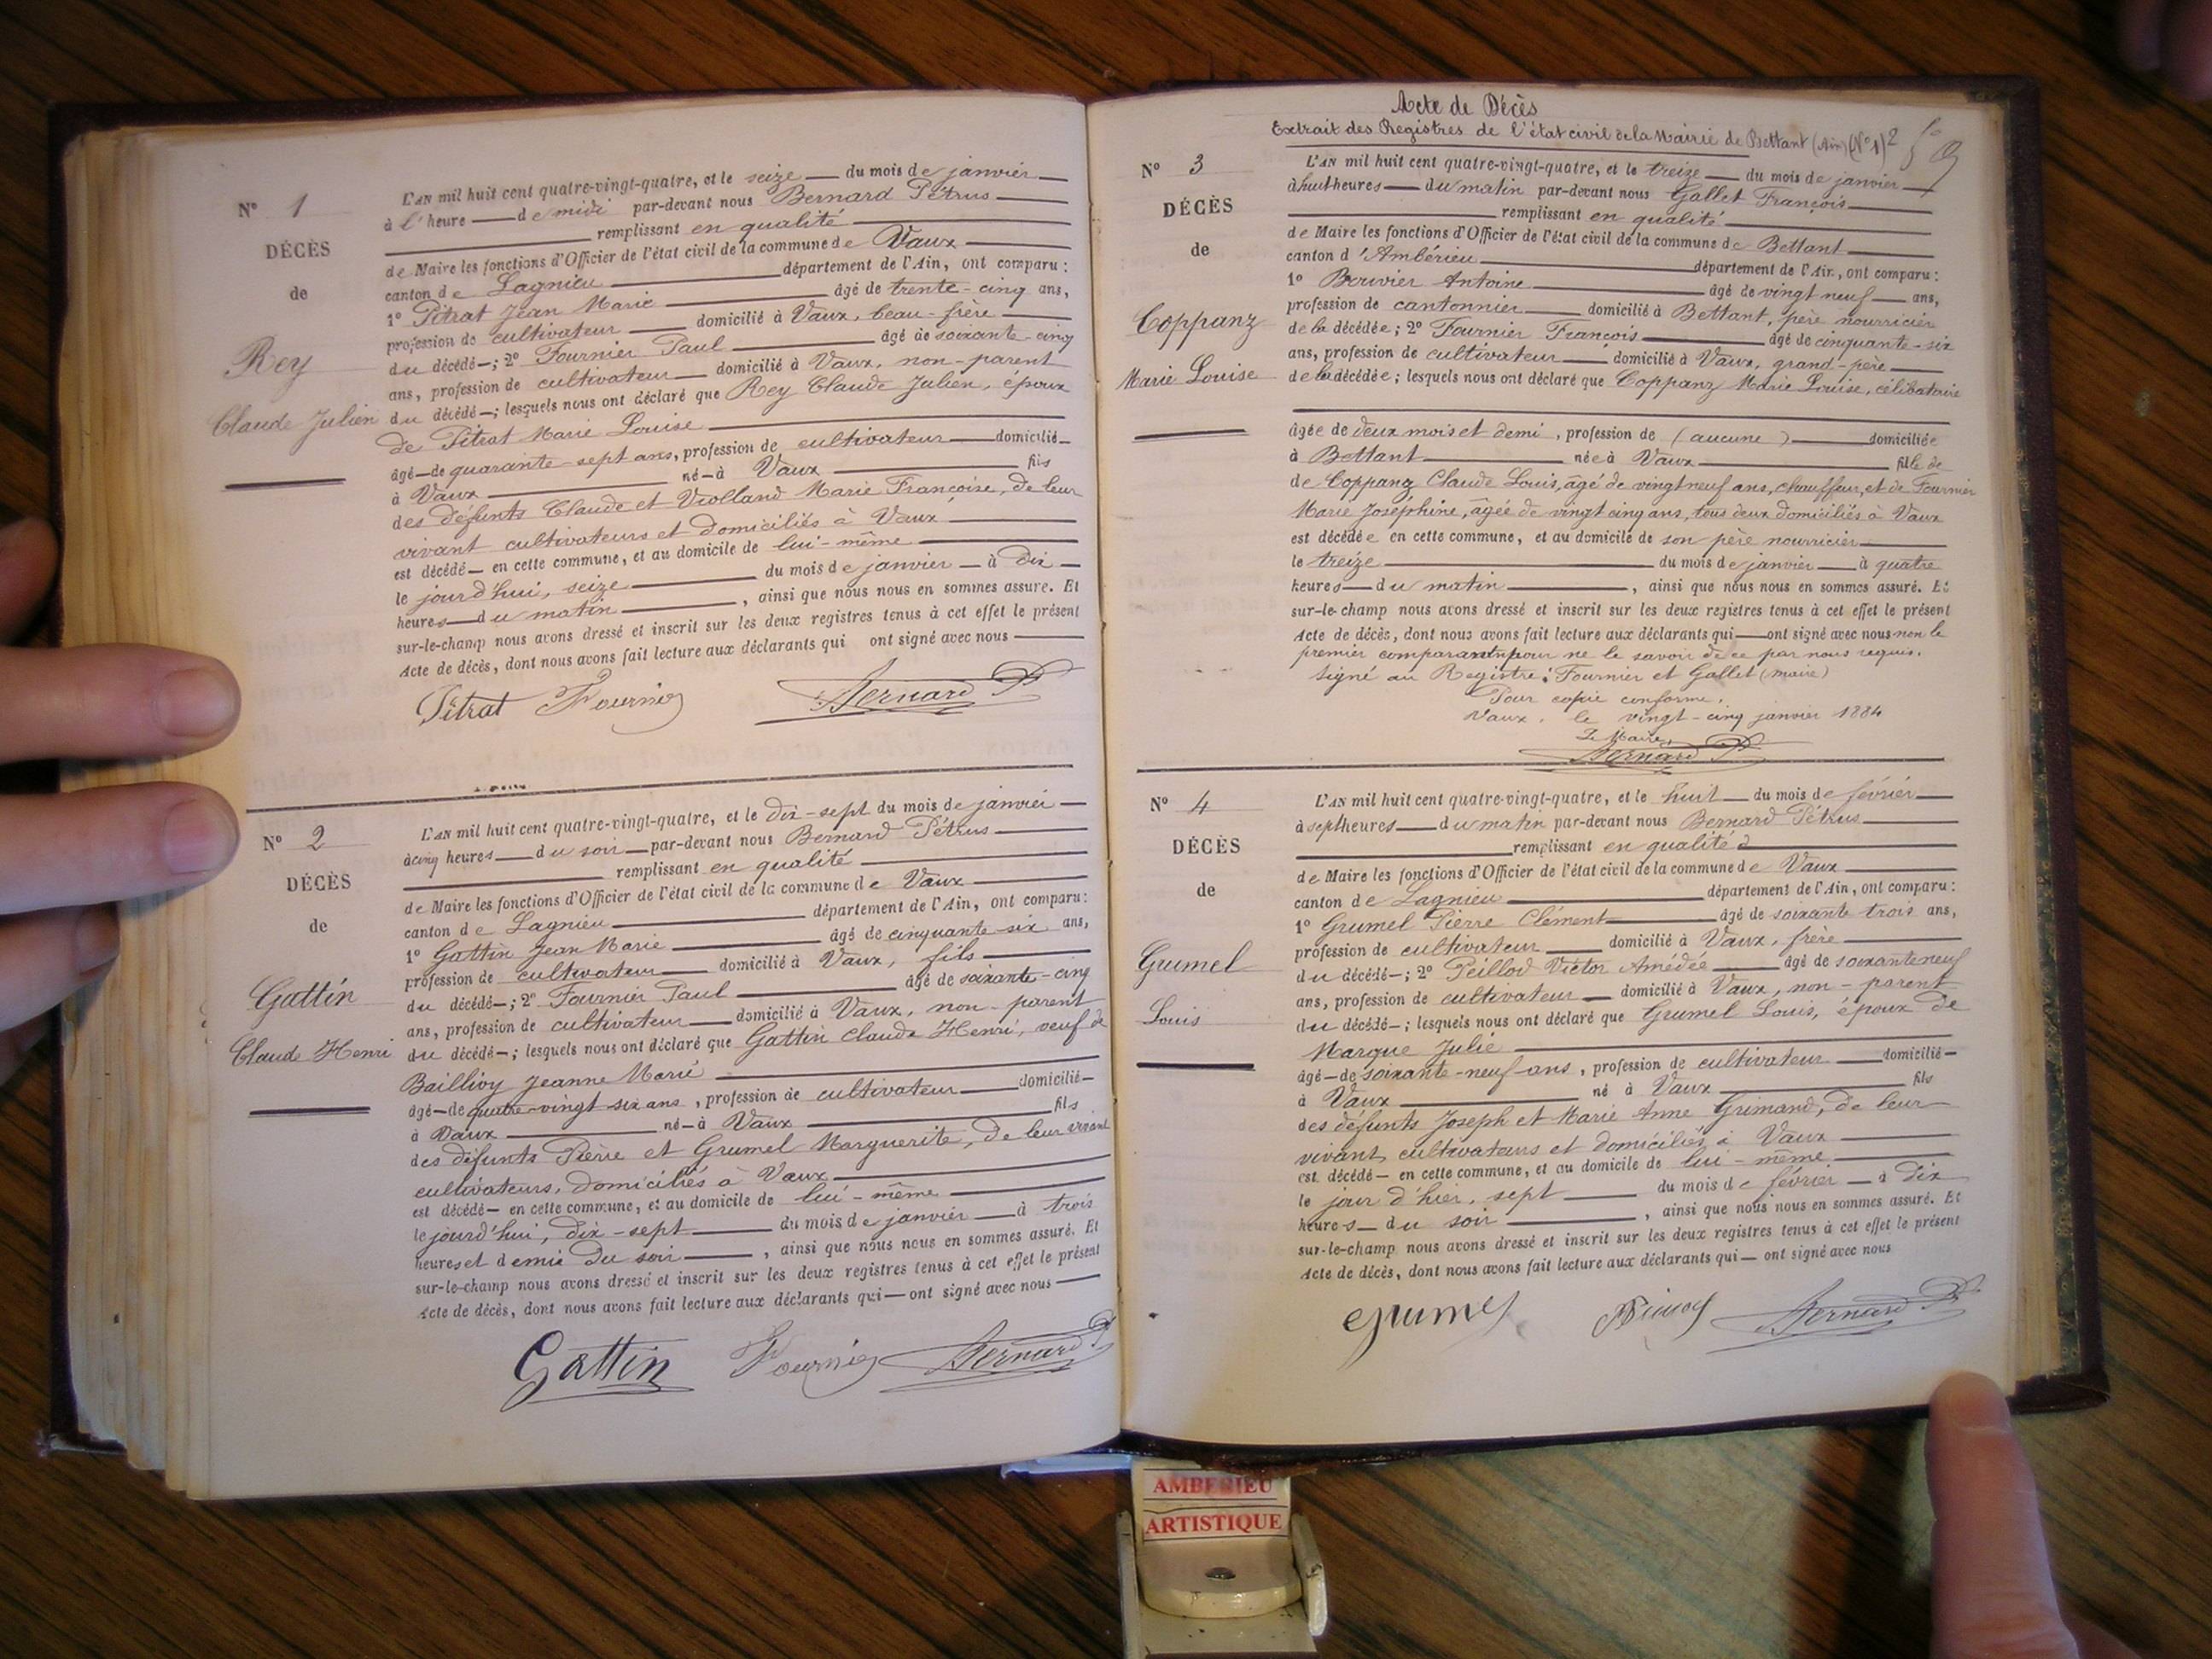 N° 1
DÉCÈS
de
Rey
Claude Julien
L'AN mil huit cent quatre-vingt-quatre, et le seize du mois de janvier
à l'heure de midi par-devant nous Bernard Pétrus
remplissant en qualité
de Maire les fonctions d'Officier de l'état civil de la commune de Vaux
canton de Lagnieu département de l'Ain, ont comparu :
1° Pitrat Jean Marie âgé de trente-cinq ans,
profession de cultivateur domicilié à Vaux, beau-frère
du décédé ; 2° Fournier Paul âgé de soixante-cinq
ans, profession de cultivateur domicilié à Vaux, non-parent
du décédé ; lesquels nous ont déclaré que Rey Claude Julien, époux
de Pitrat Marie Louise
âgé de quarante-sept ans, profession de cultivateur domicilié
à Vaux né à Vaux fils
des défunts Claude et Violland Marie Françoise, de leur
vivant cultivateurs et domiciliés à Vaux
est décédé en cette commune, et au domicile de lui-même
le jourd'hui, seize du mois de janvier à dix
heures du matin , ainsi que nous nous en sommes assuré. Et
sur-le-champ nous avons dressé et inscrit sur les deux registres tenus à cet effet le présent
Acte de décès, dont nous avons fait lecture aux déclarants qui ont signé avec nous
Pitrat Fournier Bernard P
N° 2
DÉCÈS
de
Gattin
Claude Henri
L'AN mil huit cent quatre-vingt-quatre, et le dix-sept du mois de janvier
à cinq heures du soir par-devant nous Bernard Pétrus
remplissant en qualité
de Maire les fonctions d'Officier de l'état civil de la commune de Vaux
canton de Lagnieu département de l'Ain, ont comparu :
1° Gattin Jean Marie âgé de cinquante-six ans,
profession de cultivateur domicilié à Vaux, fils
du décédé ; 2° Fournier Paul âgé de soixante-cinq
ans, profession de cultivateur domicilié à Vaux, non-parent
du décédé ; lesquels nous ont déclaré que Gattin Claude Henri, veuf de
Baillivy Jeanne Marie
âgé de quatre-vingt-six ans , profession de cultivateur domicilié
à Vaux né à Vaux fils
des défunts Pierre et Grumel Marguerite, de leur vivant
cultivateurs, domiciliés à Vaux
est décédé en cette commune, et au domicile de lui-même
le jourd'hui, dix-sept du mois de janvier à trois
heures et demie du soir , ainsi que nous nous en sommes assuré. Et
sur-le-champ nous avons dressé et inscrit sur les deux registres tenus à cet effet le présent
Acte de décès, dont nous avons fait lecture aux déclarants qui ont signé avec nous
Gattin Fournier Bernard P
Acte de Décès
Extrait des Registres de l'état civil de la Mairie de Bettant (Ain) (N° 1) 2
N° 3
DÉCÈS
de
Coppanz
Marie Louise
L'AN mil huit cent quatre-vingt-quatre, et le treize du mois de janvier
à huit heures du matin par-devant nous Gallet François
remplissant en qualité
de Maire les fonctions d'Officier de l'état civil de la commune de Bettant
canton d'Ambérieu département de l'Ain, ont comparu :
1° Bouvier Antoine âgé de vingt neuf ans,
profession de cantonnier domicilié à Bettant, père nourricier
de la décédée ; 2° Fournier François âgé de cinquante-six
ans, profession de cultivateur domicilié à Vaux, grand-père
de la décédée ; lesquels nous ont déclaré que Coppanz Marie Louise, célibataire
âgée de deux mois et demi , profession de (aucune) domiciliée
à Bettant née à Vaux fille de
de Coppanz Claude Louis, âgé de vingt neuf ans, chauffeur, et de Fournier
Marie Joséphine, âgée de vingt cinq ans, tous deux domiciliés à Vaux
est décédée en cette commune, et au domicile de son père nourricier
le treize du mois de janvier à quatre
heures du matin , ainsi que nous nous en sommes assuré. Et
sur-le-champ nous avons dressé et inscrit sur les deux registres tenus à cet effet le présent
Acte de décès, dont nous avons fait lecture aux déclarants qui ont signé avec nous non le
premier comparant pour ne le savoir de ce par nous requis.
Signé au Registre : Fournier et Gallet (maire)
Pour copie conforme,
Vaux, le vingt-cinq janvier 1884
Le Maire,
Bernard P
N° 4
DÉCÈS
de
Grumel
Louis
L'AN mil huit cent quatre-vingt-quatre, et le huit du mois de février
à sept heures du matin par-devant nous Bernard Pétrus
remplissant en qualité
de Maire les fonctions d'Officier de l'état civil de la commune de Vaux
canton de Lagnieu département de l'Ain, ont comparu :
1° Grumel Pierre Clément âgé de soixante trois ans,
profession de cultivateur domicilié à Vaux, frère
du décédé ; 2° Peillod Victor Amédée âgé de soixante neuf
ans, profession de cultivateur domicilié à Vaux, non-parent
du décédé ; lesquels nous ont déclaré que Grumel Louis, époux de
Marque Julie
âgé de soixante-neuf ans , profession de cultivateur domicilié
à Vaux né à Vaux fils
des défunts Joseph et Marie Anne Grimand, de leur
vivant cultivateurs et domiciliés à Vaux
est décédé en cette commune, et au domicile de lui-même
le jour d'hier, sept du mois de février à dix
heures du soir , ainsi que nous nous en sommes assuré. Et
sur-le-champ nous avons dressé et inscrit sur les deux registres tenus à cet effet le présent
Acte de décès, dont nous avons fait lecture aux déclarants qui ont signé avec nous
Grumel Bernard P
AMBERIEU
ARTISTIQUE